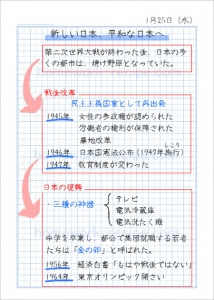 1月25日（水）
新しい日本、平和な日本へ
第二次世界大戦が終わった後、日本の多
くの都市は、焼け野原となっていた。
戦後改革
民主主義国家として再出発
1945年 女性の参政権が認められた
労働者の権利が保障された
農地改革
1946年 日本国憲法公布（1947年施行）
しこう
1947年 教育制度が変わった
日本の復興
・三種の神器
テレビ
電気冷蔵庫
電気洗たく機
中学を卒業し、都会で集団就職する若者
たちは「金の卵」と呼ばれた。
1956年 経済白書「もはや戦後ではない」
1964年 東京オリンピック開さい